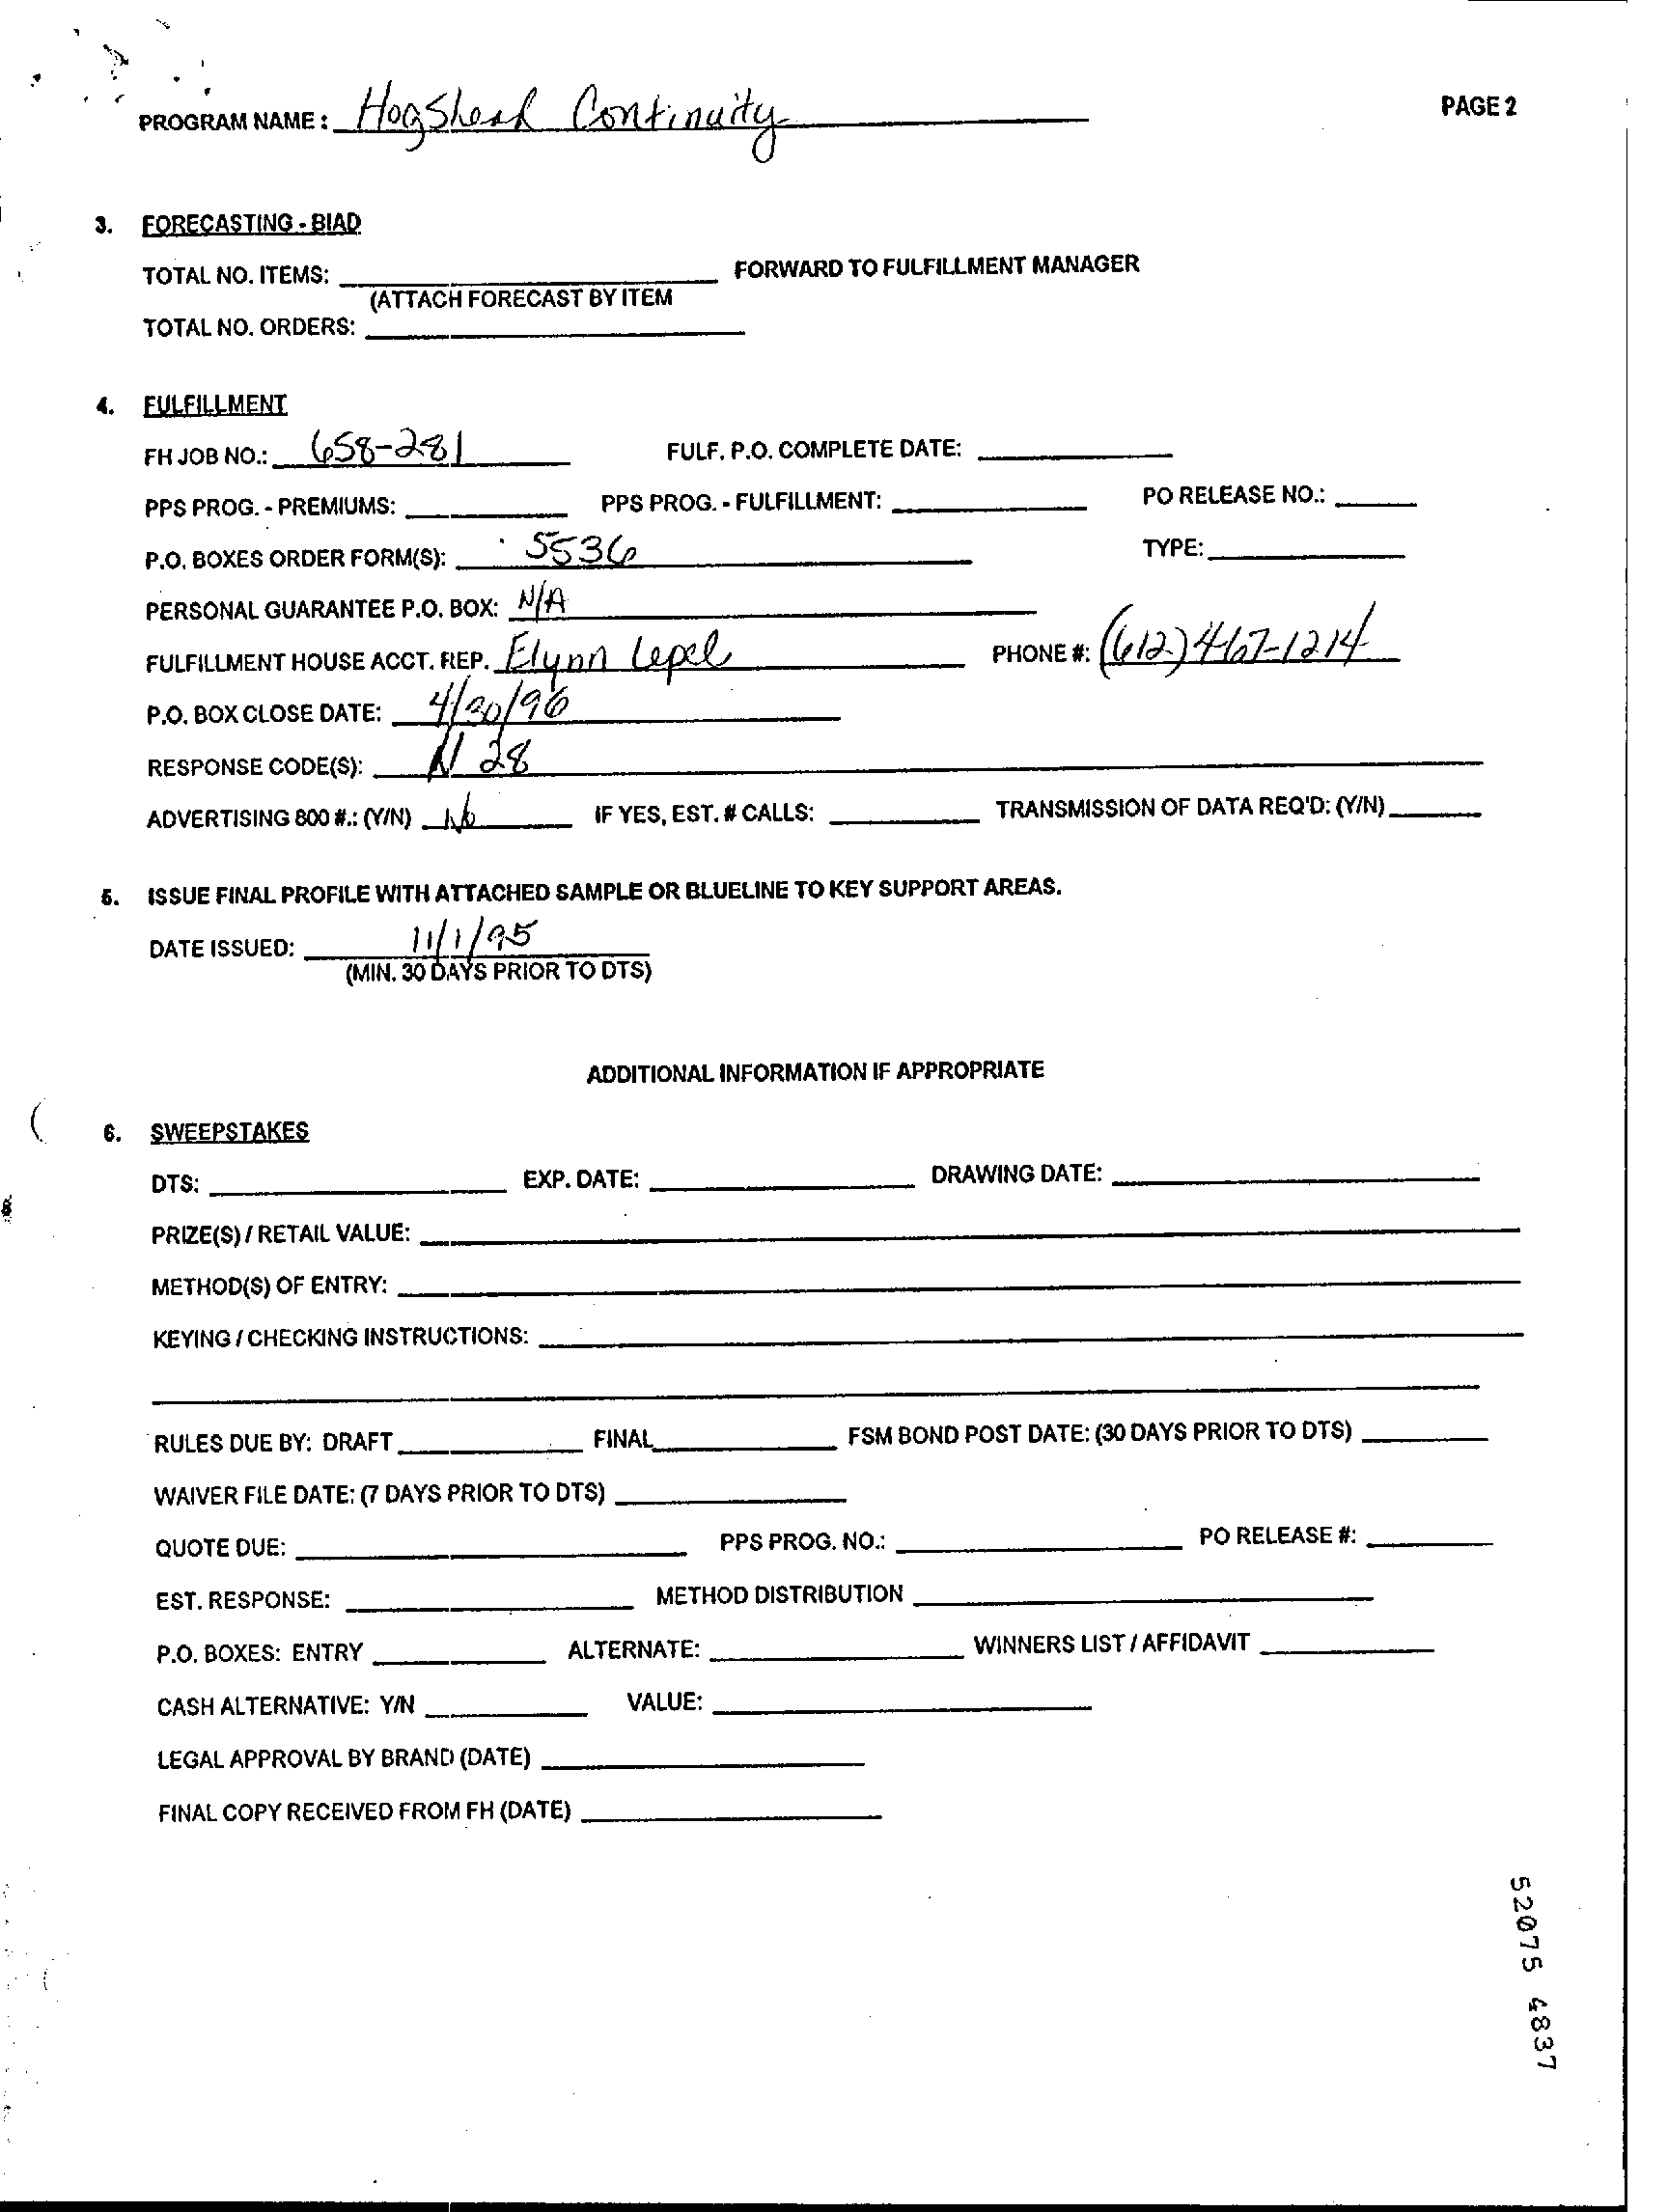 PROGRAM NAME : HogShead Continuity PAGE 2
3. FORECASTING - BIAD
TOTAL NO. ITEMS: FORWARD TO FULFILLMENT MANAGER
(ATTACH FORECAST BY ITEM
TOTAL NO. ORDERS:
4. FULFILLMENT
FH JOB NO.: 658-281 FULF. P.O. COMPLETE DATE:
PPS PROG. - PREMIUMS: PPS PROG. - FULFILLMENT: PO RELEASE NO.:
P.O. BOXES ORDER FORM(S): 5536 TYPE:
PERSONAL GUARANTEE P.O. BOX: N/A
FULFILLMENT HOUSE ACCT. REP. Elynn Lepel PHONE #: (612) 467-1214
P.O. BOX CLOSE DATE: 4/30/96
RESPONSE CODE(S): N 28
ADVERTISING 800 #.: (Y/N) No IF YES, EST. # CALLS: TRANSMISSION OF DATA REQ'D: (Y/N)
5. ISSUE FINAL PROFILE WITH ATTACHED SAMPLE OR BLUELINE TO KEY SUPPORT AREAS.
DATE ISSUED: 11/1/95
(MIN. 30 DAYS PRIOR TO DTS)
ADDITIONAL INFORMATION IF APPROPRIATE
6. SWEEPSTAKES
DTS: EXP. DATE: DRAWING DATE:
PRIZE(S) / RETAIL VALUE:
METHOD(S) OF ENTRY:
KEYING / CHECKING INSTRUCTIONS:
RULES DUE BY: DRAFT FINAL FSM BOND POST DATE: (30 DAYS PRIOR TO DTS)
WAIVER FILE DATE: (7 DAYS PRIOR TO DTS)
QUOTE DUE: PPS PROG. NO.: PO RELEASE #:
EST. RESPONSE: METHOD DISTRIBUTION
P.O. BOXES: ENTRY ALTERNATE: WINNERS LIST / AFFIDAVIT
CASH ALTERNATIVE: Y/N VALUE:
LEGAL APPROVAL BY BRAND (DATE)
FINAL COPY RECEIVED FROM FH (DATE)
52075 4837